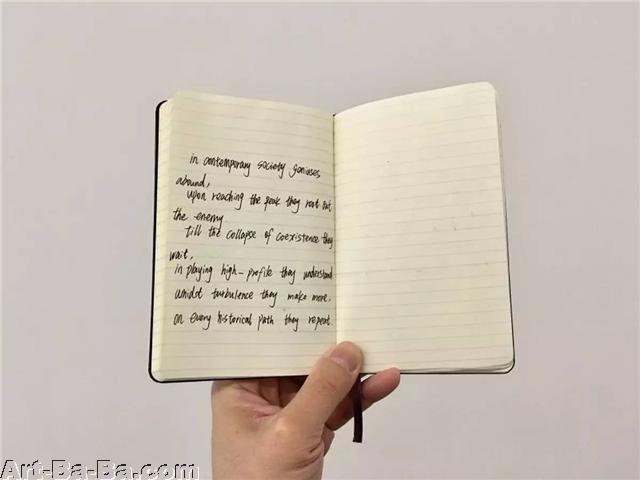 in contemporary society geniuses
abound,
upon reaching the peak they root out
the enemy
till the collapse of coexistence they
wait,
in playing high-profile they understand
amidst turbulence they make more,
on every historical path they repeat.
Art-Ba-Ba.com